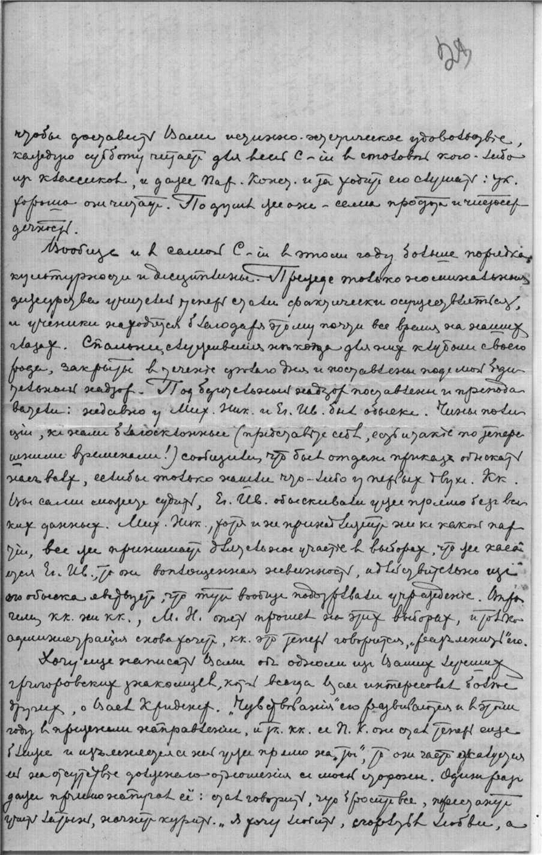 29
чтобы доставить Вам истинно-эстетическое удовольствие,
каждую субботу читает для всей С-ии в столовой кого-либо
из классиков, и даже Пар. Конст. и та ходит его слушать: ух.
хорошо он читает. По душе же он - сама простота и чистосер
дечность.
Вообще и в самой С-ии в этом году больше порядка,
культурности и дисциплины. Прежде только номинальные
дежурства учителей теперь стали фактически осуществляться,
и ученики находятся благодаря этому почти все время на наших
глазах. Спальни, служившие некогда для них клубами своего
рода, закрыты в течение целого дня и поставлены под мой бди
тельный надзор. Под бдительный надзор поставлены и препода
ватели: недавно у Мих. Ник. и Ел. Ив. был обыск. Чины поли
ции, к нам благосклонные (представьте себе, есть и такие по тепере
шним временам!) сообщили, что был отдан приказ обыскать
нас всех, если бы только нашли что-либо у первых двух. Кк.
Вы сами можете судить, Ел. Ив. обыскивали уже прямо без вся
ких данных. Мих. Ник., хотя и не принадлежит ни к какой пар
тии, все же принимает деятельное участие в выборах, что же каса
ется Ел. Ив., то он воплощенная невинность, и действительно
обыска следует, что тут вообще подозревали учреждение. Впро
чем, кк. ни кк., М. Н. опять прошел на этих выборах, и только
администрация снова хочет, кк. это теперь говорится, „разъяснить" его.
Хочу еще написать Вам об одном из Ваших лучших
григоровских знакомцев, который всегда Вас интересовал более
других, о Васе Кридинер. „Чувствования" его развиваются и в этом
году в прежнем направлении, и тк. кк. с П. К. он стал теперь еще
ближе и изъясняется с ней уже прямо на „ты", то он часто жалуется
ей на отсутствие должного отношения с моей стороны. Один раз
даже прямо напугал ее: стал говорить, что бросит все, перестанет
учить латынь, начнет курить. „Я хочу любить, сгораю от любви, а